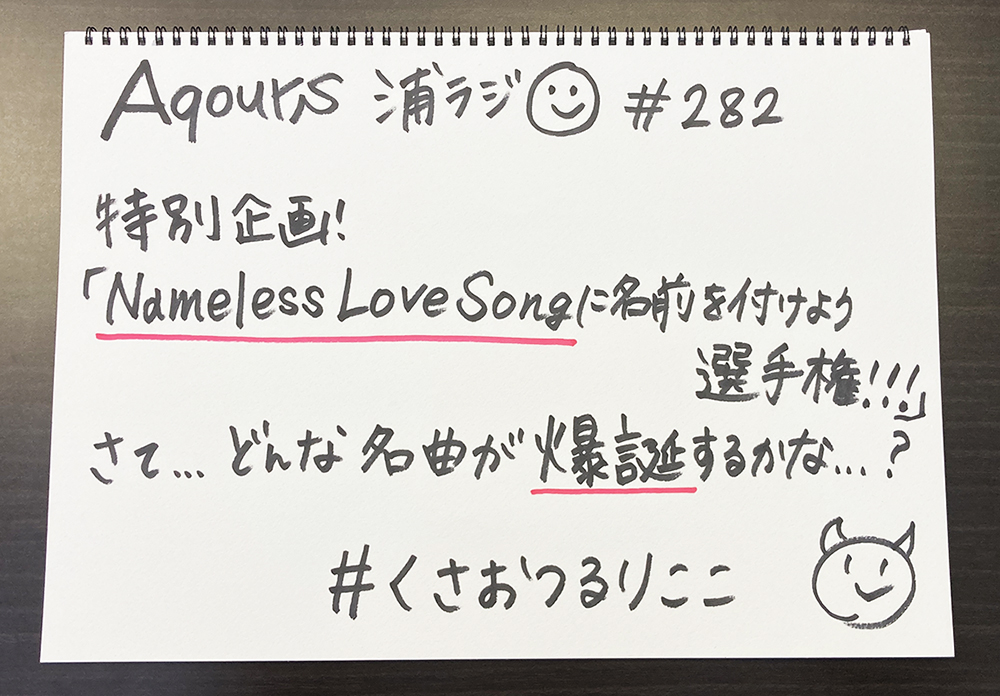 Aqours 浦ラジ #282
特別企画!
「Nameless Love Songに名前を付けよう
選手権!!!」
さて...どんな名曲が爆誕するかな...?
#くさおつるりここ